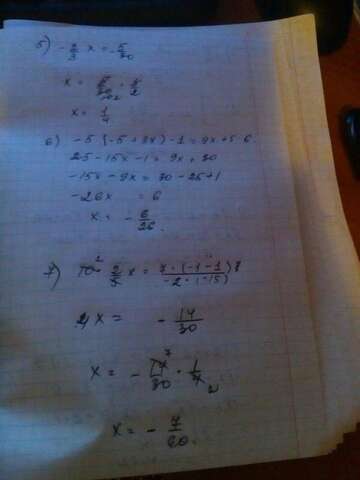 5) -2/3 x = 5/30
x = 5/30 · 3/2
x = 1/4
6) -5 (-5+3x) -1 = 9x+5·6
25-15x-1 = 9x+30
-15x-9x = 30-25+1
-26x = 6
x = -6/26
7) 10² · 2/5 x = 7·(-1-1)/(-2·(-15))
4x = -14/30
x = -14⁷/30 · 1/4₂
x = -7/60.